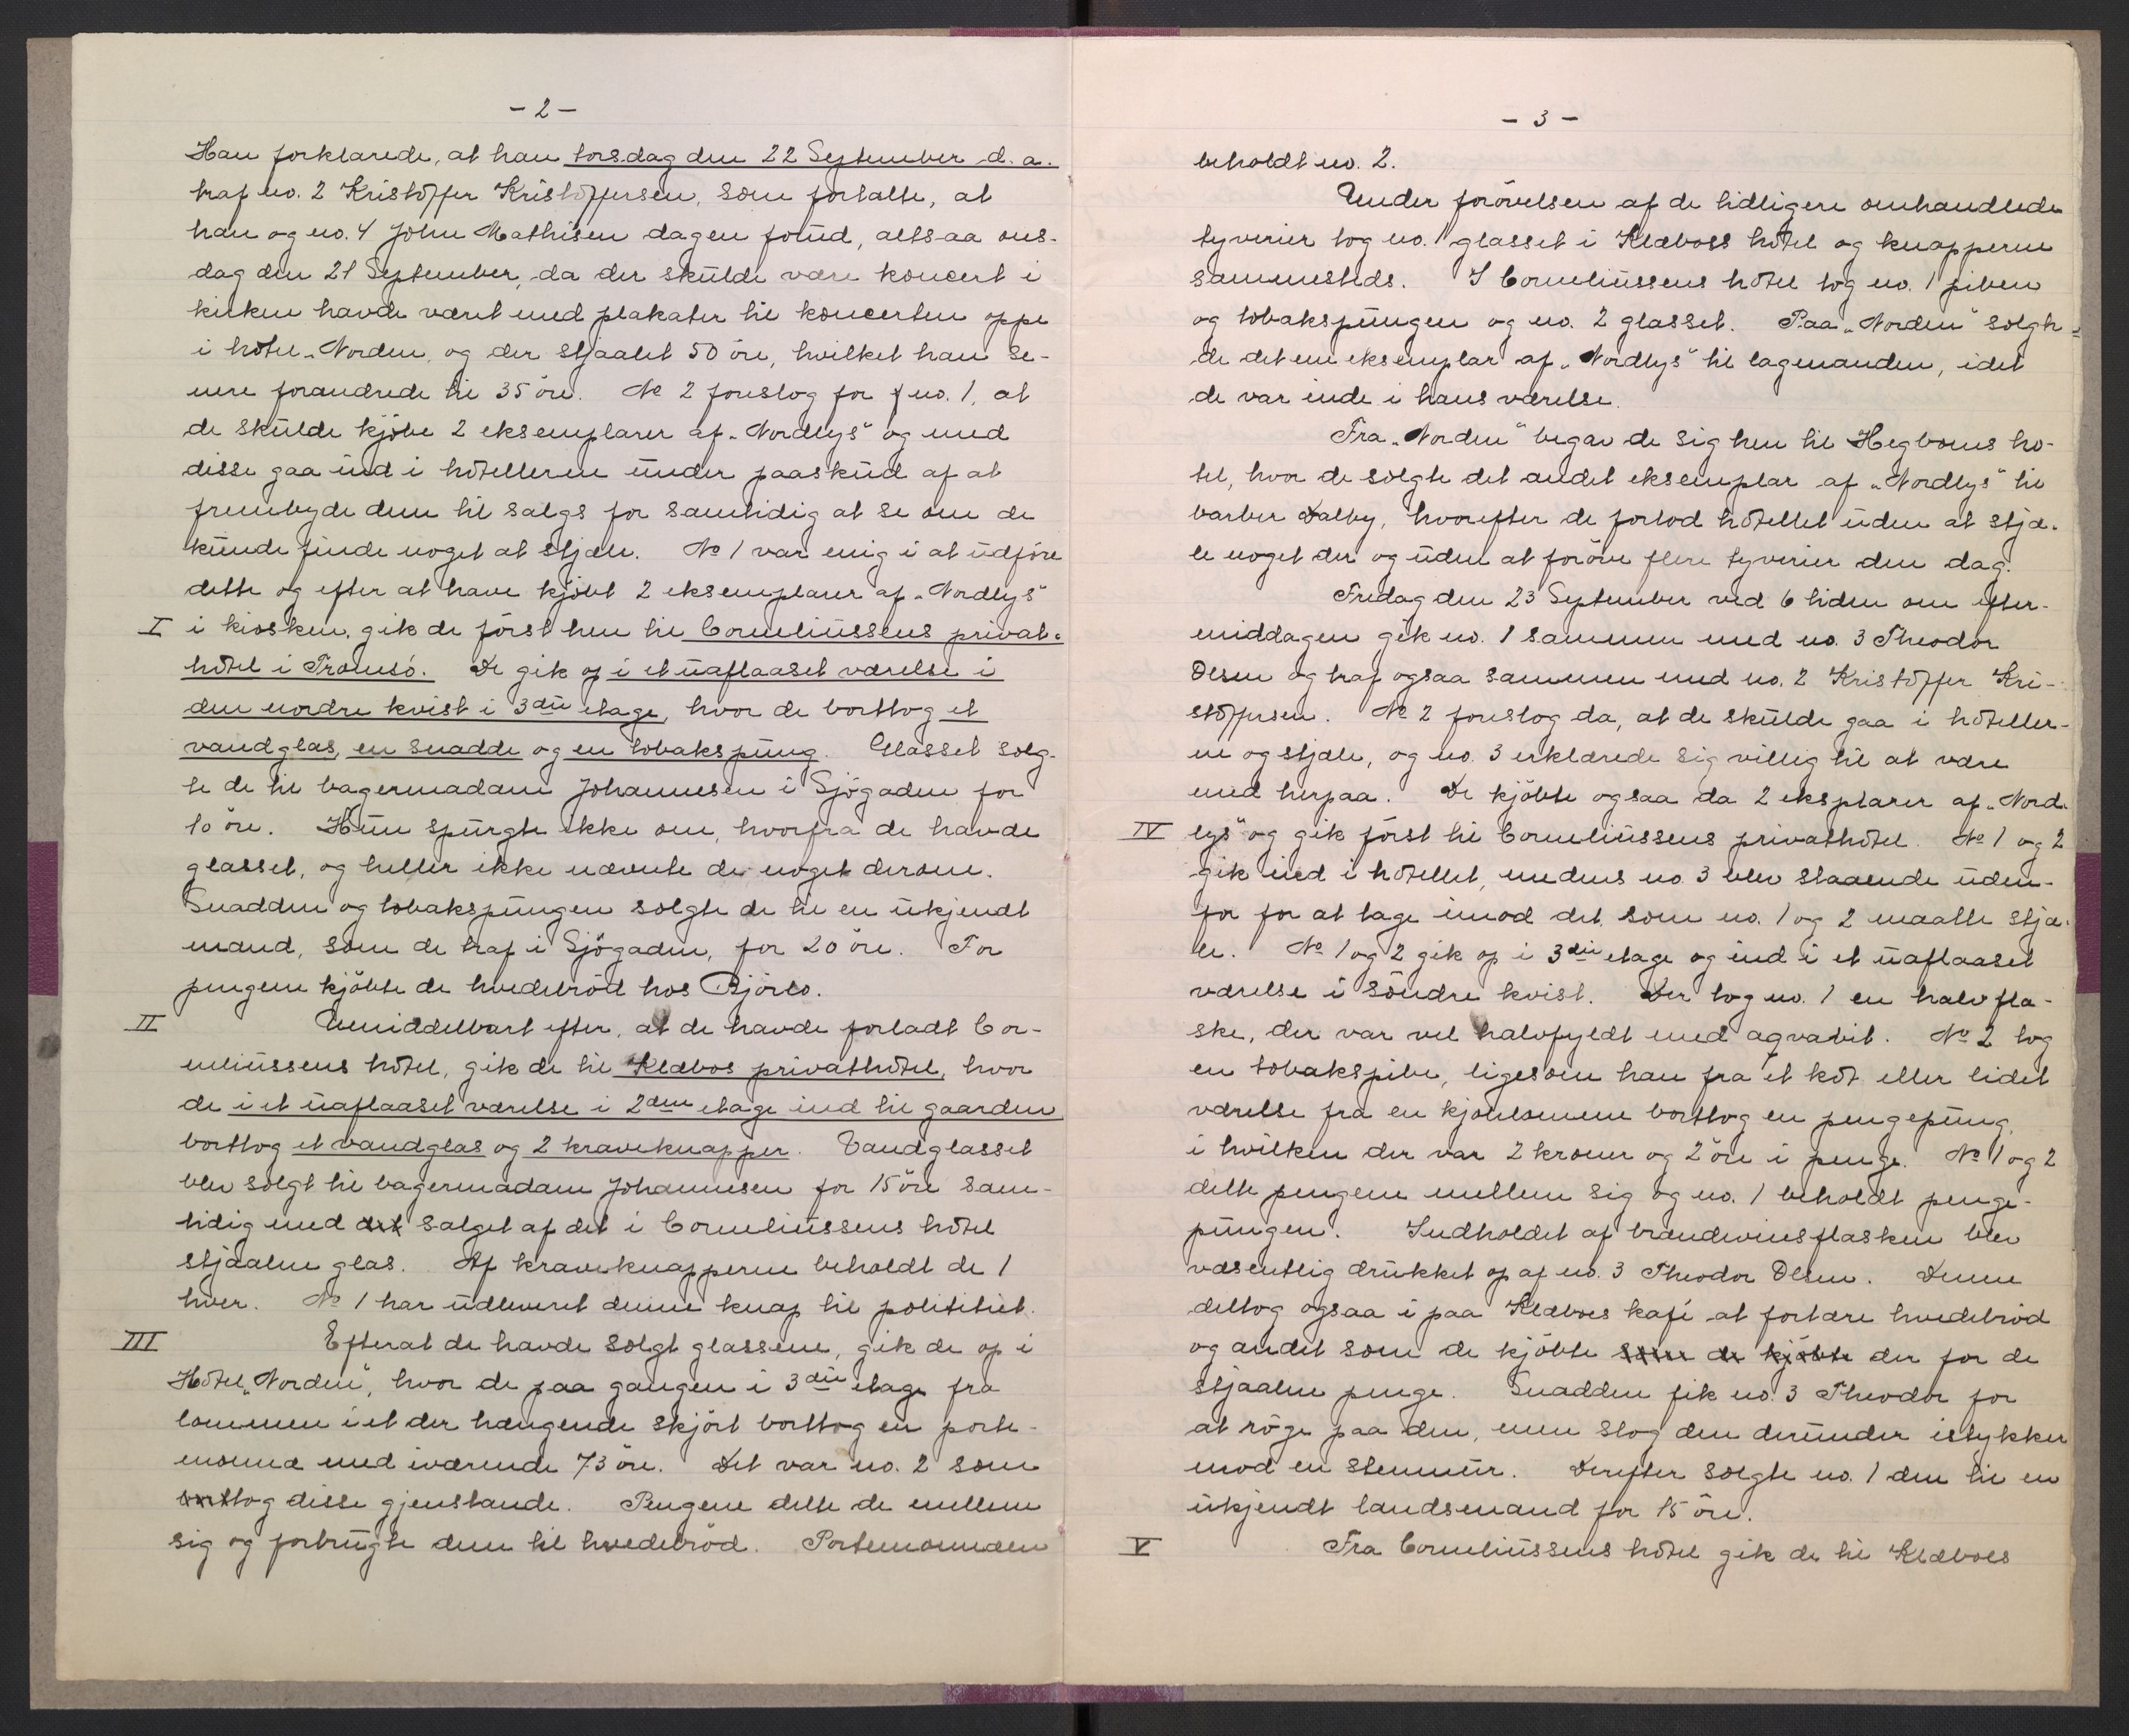 - 2 -
Han forklarede, at han torsdag den 22 September d. a.
traf no. 2 Kristoffer Kristoffersen, som fortalte, at
han og no. 4 John Mathisen dagen forud, altsaa ons-
dag den 21 September, da der skulde være koncert i
kirken havde været med plakater til koncerten oppe
i hotel „Norden, og der stjaalet 50 öre, hvilket han se-
nere forandrede til 35 öre. No 2 foreslog for no. 1, at
de skulde kjöbe 2 eksemplarer af „Nordlys" og med
disse gaa ind i hotellerne under paaskud af at
frembyde dem til salgs for samtidig at se om de
kunde finde noget at stjæle. No 1 var enig i at udføre
dette og efter at have kjöbt 2 eksemplarer af „Nordlys"
I i kiosken, gik de först hen til Corneliussens privat-
hotel i Tromsö. De gik op i et uaflaaset værelse i
den nordre kvist i 3die etage, hvor de borttog et
vandglas, en snadde og en tobakspung. Glasset solg-
te de til bagermadam Johannesen i Sjögaden for
10 öre. Hun spurgte ikke om, hvorfra de havde
glasset, og heller ikke nævnte de noget derom.
Snadden og tobakspungen solgte de til en ukjendt
mand, som de traf i Sjögaden, for 20 öre. For
pengene kjöbte de hvedebröd hos Björlo.
II Umiddelbart efter, at de havde forladt Cor-
neliussens hotel, gik de til Klæbos privathotel, hvor
de i et uaflaaset værelse i 2den etage ind til gaarden
borttog et vandglas og 2 kraveknapper. Vandglasset
blev solgt til bagermadam Johannesen for 15 öre sam-
tidig med det salget af det i Corneliussens hotel
stjaalne glas. Af kraveknapperne beholdt de 1
hver. No 1 har udleveret denne knap til polititiet.
III Efterat de havde solgt glassene, gik de op i
Hotel „Norden", hvor de paa gangen i 3die etage fra
lommen i et der hængende skjört borttog en porte-
monnæ med iværende 73 öre. Det var no. 2 som
borttog disse gjenstande. Pengene delte de mellem
sig og forbrugte dem til hvedebröd. Portemonnæen
- 3 -
beholdt no. 2.
Under forövelsen af de tidligere omhandlede
tyverier tog no. 1 glasset i Klæboss hotel og knapperne
sammesteds. I Corneliussens hotel tog no. 1 piben
og tobakspungen og no. 2 glasset. Paa „Norden" solgte
de det ene eksemplar af „Nordlys" til lagmanden, idet
de var inde i hans værelse.
Fra „Norden" begav de sig hen til Hegboms ho-
tel, hvor de solgte det andet eksemplar af „Nordlys" til
barber Dalby, hvorefter de forlod hotellet uden at stjæ-
le noget der og uden at foröve flere tyverier den dag.
Fredag den 23 September ved 6 tiden om efter-
middagen gik no. 1 sammen med no. 3 Theodor
Olsen og traf ogsaa sammen med no. 2 Kristoffer Kri-
stoffersen. No 2 foreslog da, at de skulde gaa i hoteller-
ne og stjæle, og no. 3 erklærede sig villig til at være
med herpaa. De kjöbte ogsaa da 2 eksplarer af „Nord-
IV lys" og gik först til Corneliussens privathotel. No 1 og 2
gik ind i hotellet, medens no. 3 blev staaende uden-
for for at tage imod det, som no. 1 og 2 maatte stjæ-
le. No 1 og 2 gik op i 3die etage og ind i et uaflaaset
værelse i söndre kvist. Der tog no. 1 en halvfla-
ske, der var vel halvfyldt med aqvavit. No 2 tog
en tobakspibe, ligesom han fra et kot eller lidet
værelse fra en kjolelomme borttog en pengepung,
i hvilken der var 2 kroner og 2 öre i penge. No 1 og 2
delte pengene mellem sig og no. 1 beholdt penge-
pungen. Indholdet af brændevinsflasken blev
væsentlig drukket op af no. 3 Theodor Olsen. Denne
deltog ogsaa i paa Klæboes kafé at fortære hvedebröd
og andet som de kjöbte som de kjöbte der for de
stjaalne penge. Snadden fik no. 3 Theodor for
at röge paa den, men slog den derunder istykker
mod en stenmur. Derefter solgte no. 1 den til en
ukjendt landsmand for 15 öre.
V Fra Corneliussens hotel gik de til Klæboes